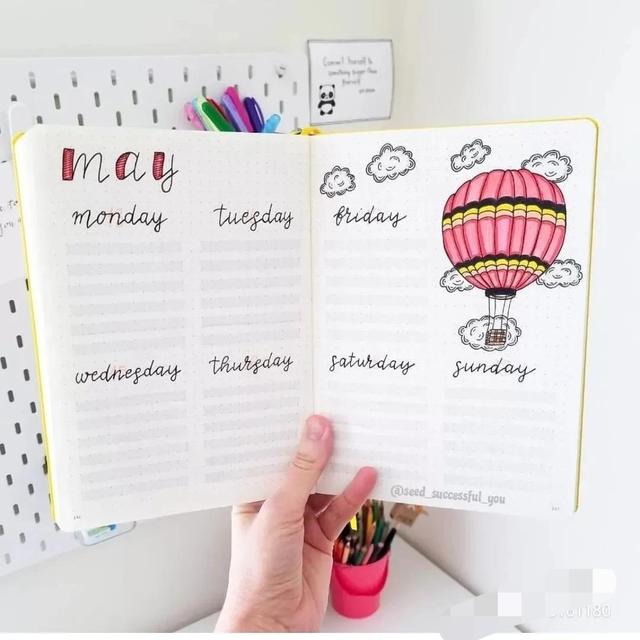 may
monday
tuesday
friday
wednesday
thursday
saturday
sunday
@seed_successful_you
Commit yourself to
something bigger than
yourself